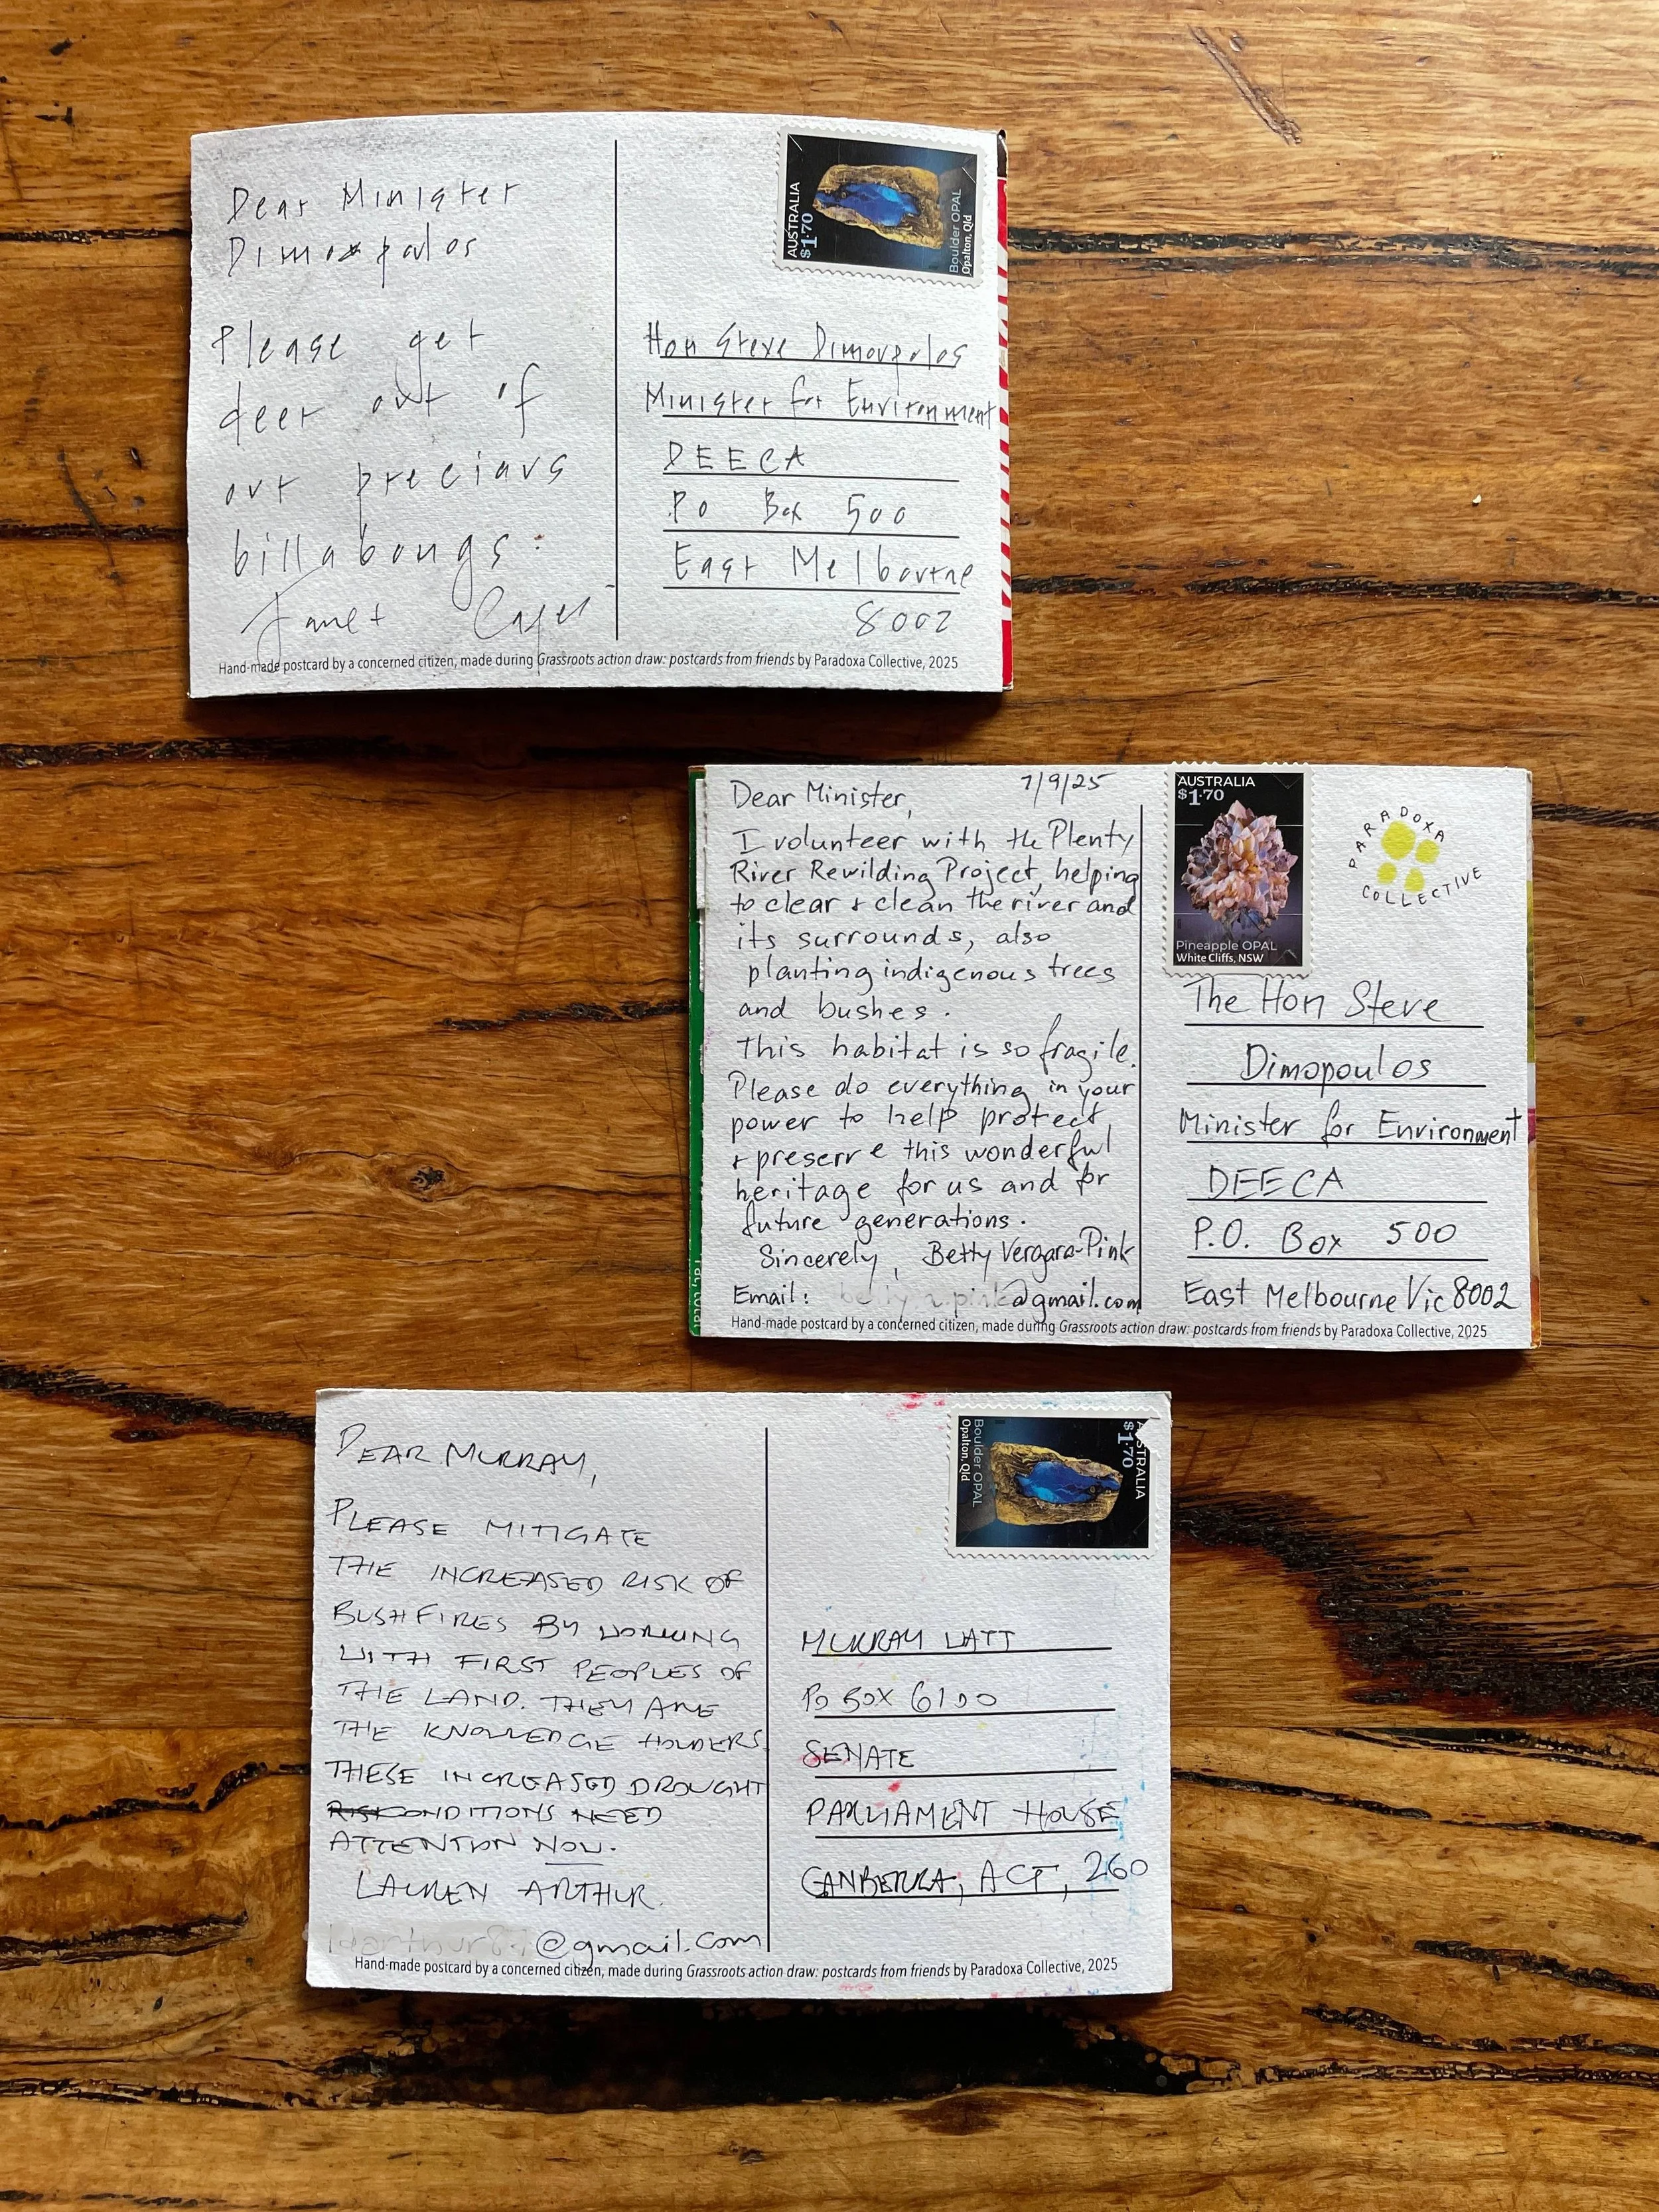 Dear Minister
Dimopolos
Please get
deer out of
our precious
billabongs.
Janet
AUSTRALIA
$1.70
Boulder OPAL
Opalton, Qld
Hon Steve Dimovpolos
Minister for Environment
DEECA
PO Box 500
East Melbourne
8002
Hand-made postcard by a concerned citizen, made during Grassroots action draw: postcards from friends by Paradoxa Collective, 2025
Dear Minister, 7/9/25
I volunteer with the Plenty
River Rewilding Project, helping
to clear & clean the river and
its surrounds, also
planting indigenous trees
and bushes.
This habitat is so fragile.
Please do everything in your
power to help protect
& preserve this wonderful
heritage for us and for
future generations.
Sincerely, Betty Vergara-Pink
Email: @gmail.com
AUSTRALIA
$1.70
Pineapple OPAL
White Cliffs, NSW
PARADOXA
COLLECTIVE
The Hon Steve
Dimopoulos
Minister for Environment
DEECA
P.O. Box 500
East Melbourne Vic 8002
Hand-made postcard by a concerned citizen, made during Grassroots action draw: postcards from friends by Paradoxa Collective, 2025
DEAR MURRAY,
PLEASE MITIGATE
THE INCREASED RISK OF
BUSHFIRES BY WORKING
WITH FIRST PEOPLES OF
THE LAND. THEY ARE
THE KNOWLEDGE HOLDERS.
THESE INCREASED DROUGHT
CONDITIONS NEED
ATTENTION NOW.
LAUREN ARTHUR.
@gmail.com
AUSTRALIA
$1.70
Boulder OPAL
Opalton, Qld
MURRAY WATT
PO BOX 6100
SENATE
PARLIAMENT HOUSE
CANBERRA, ACT, 260
Hand-made postcard by a concerned citizen, made during Grassroots action draw: postcards from friends by Paradoxa Collective, 2025